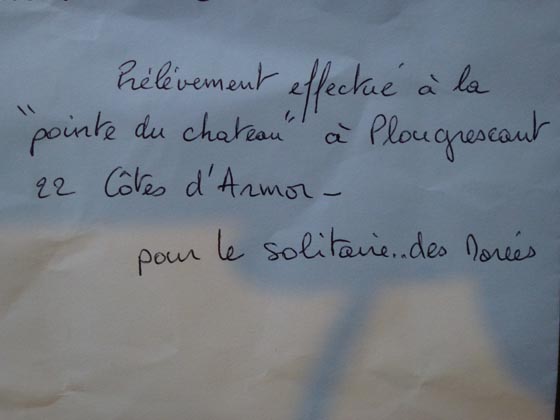 Prélèvement effectué à la
"pointe du chateau" à Plougrescant
22 Côtes d'Armor -
pour le solitaire..des Dorées